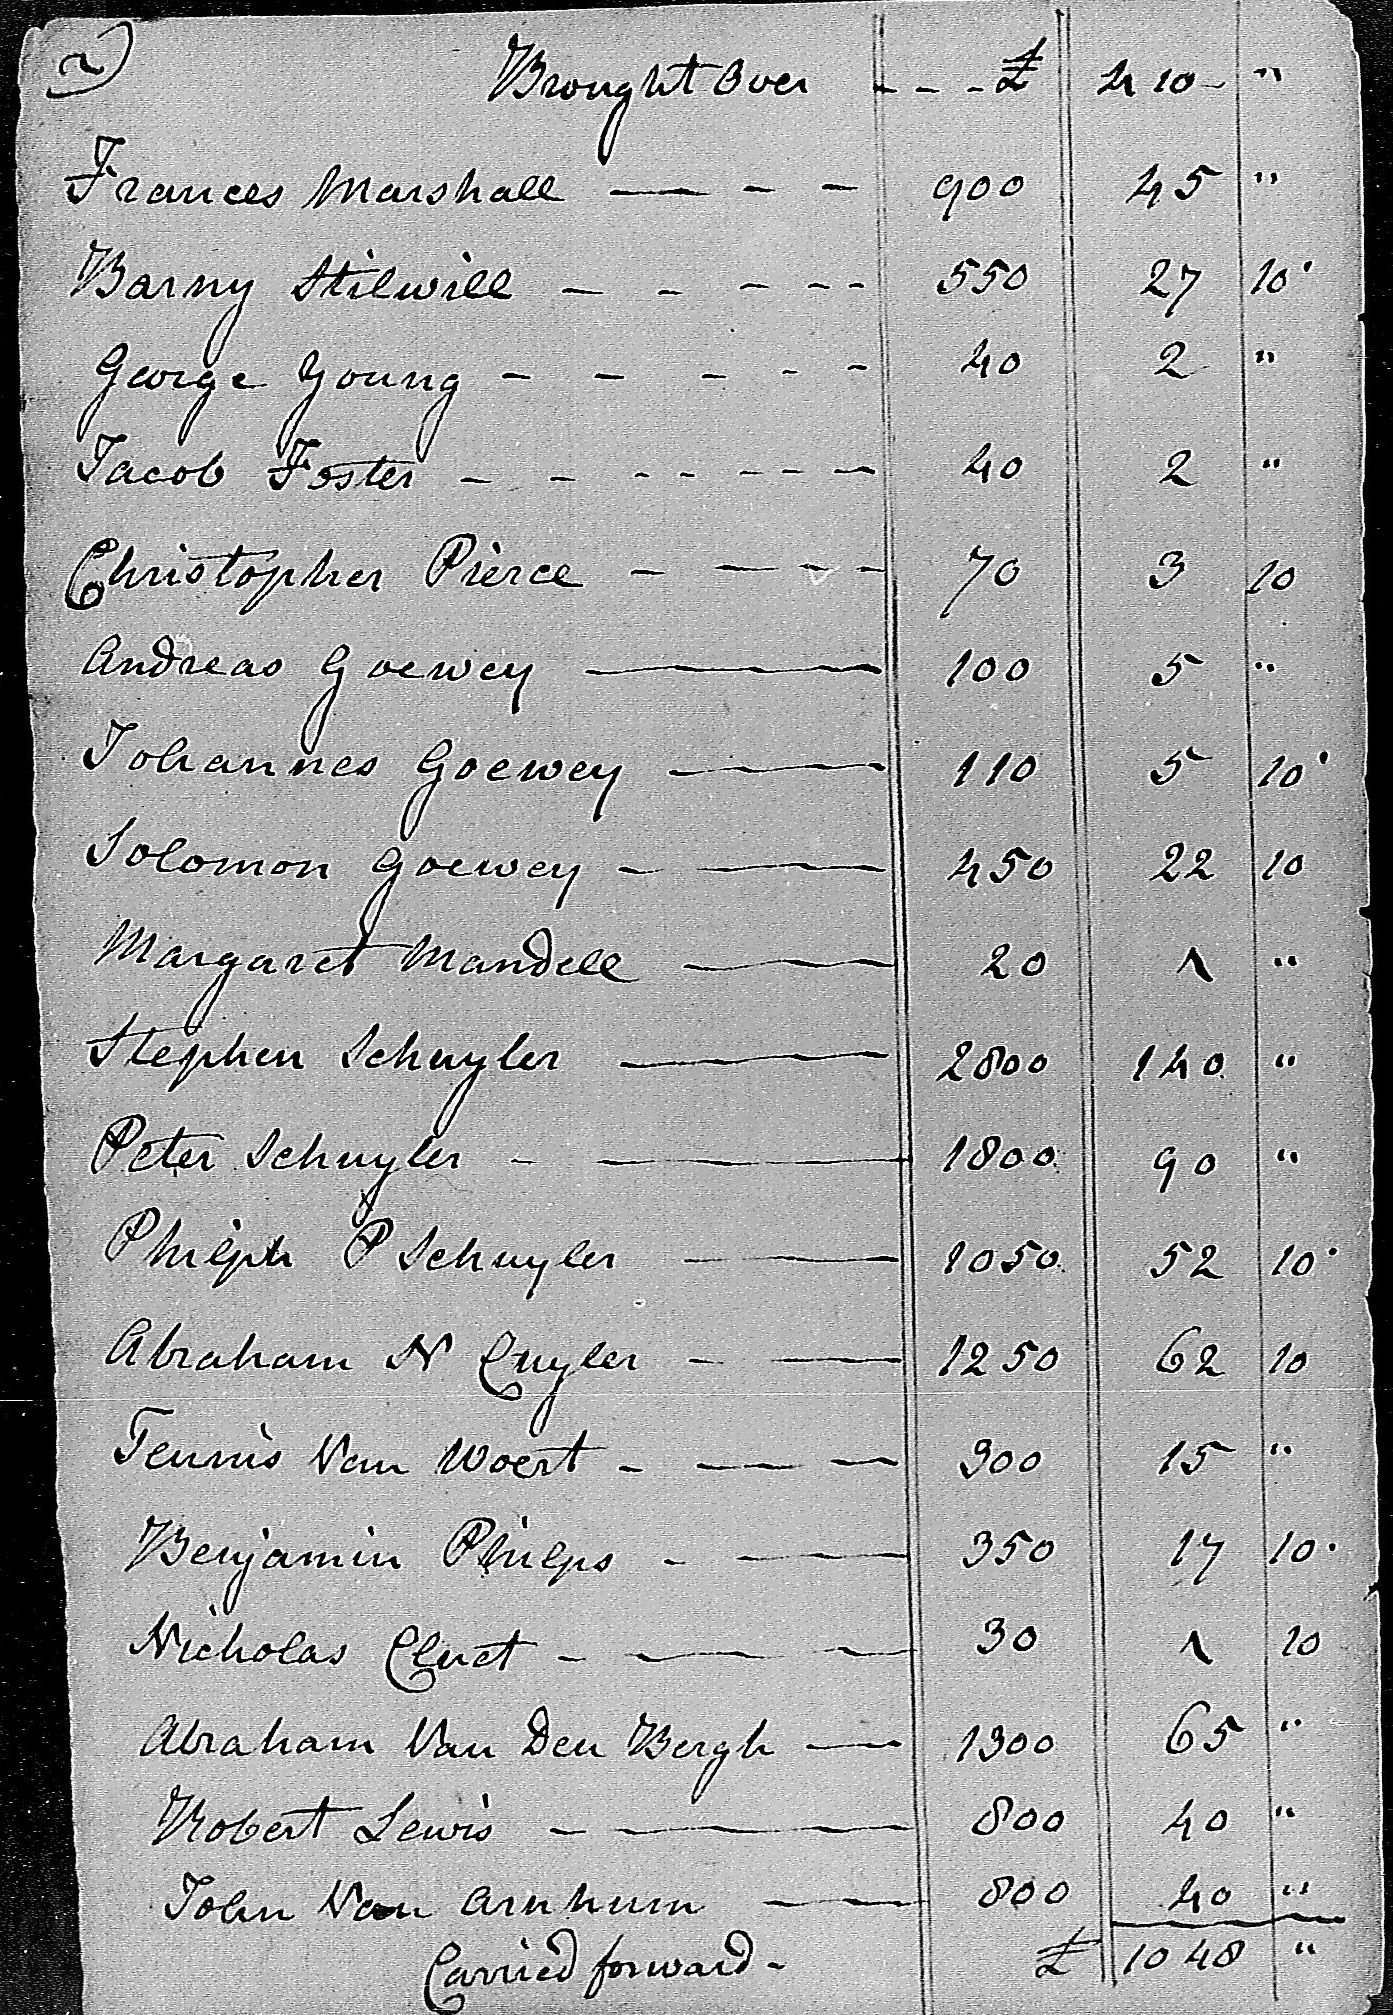 2)
Brought Over - - - £ 410 - "
Frances Marshall — - - 900 45 "
Barny Stilwill - - - - - 550 27 10
George Young - - - - - 40 2 "
Jacob Foster - - - - - - - 40 2 "
Christopher Pierce - - - - - 70 3 10
Andreas Goewey — 100 5 "
Johannes Goewey — 110 5 10
Solomon Goewey - — 450 22 10
Margaret Mandell — 20 1 "
Stephen Schuyler — 2800 140 "
Peter Schuyler - — 1800 90 "
Philph P Schuyler — 1050 52 10
Abraham N Cuyler - — 1250 62 10
Teunis Van Woert - — - 300 15 "
Benjamin Philps - — 350 17 10
Nicholas Cluet - — - 30 1 10
Abraham Van Den Bergh — 1300 65 "
Robert Lewis - — 800 40 "
John Van Arnhum — 800 40 "
Carried forward - £ 1048 "